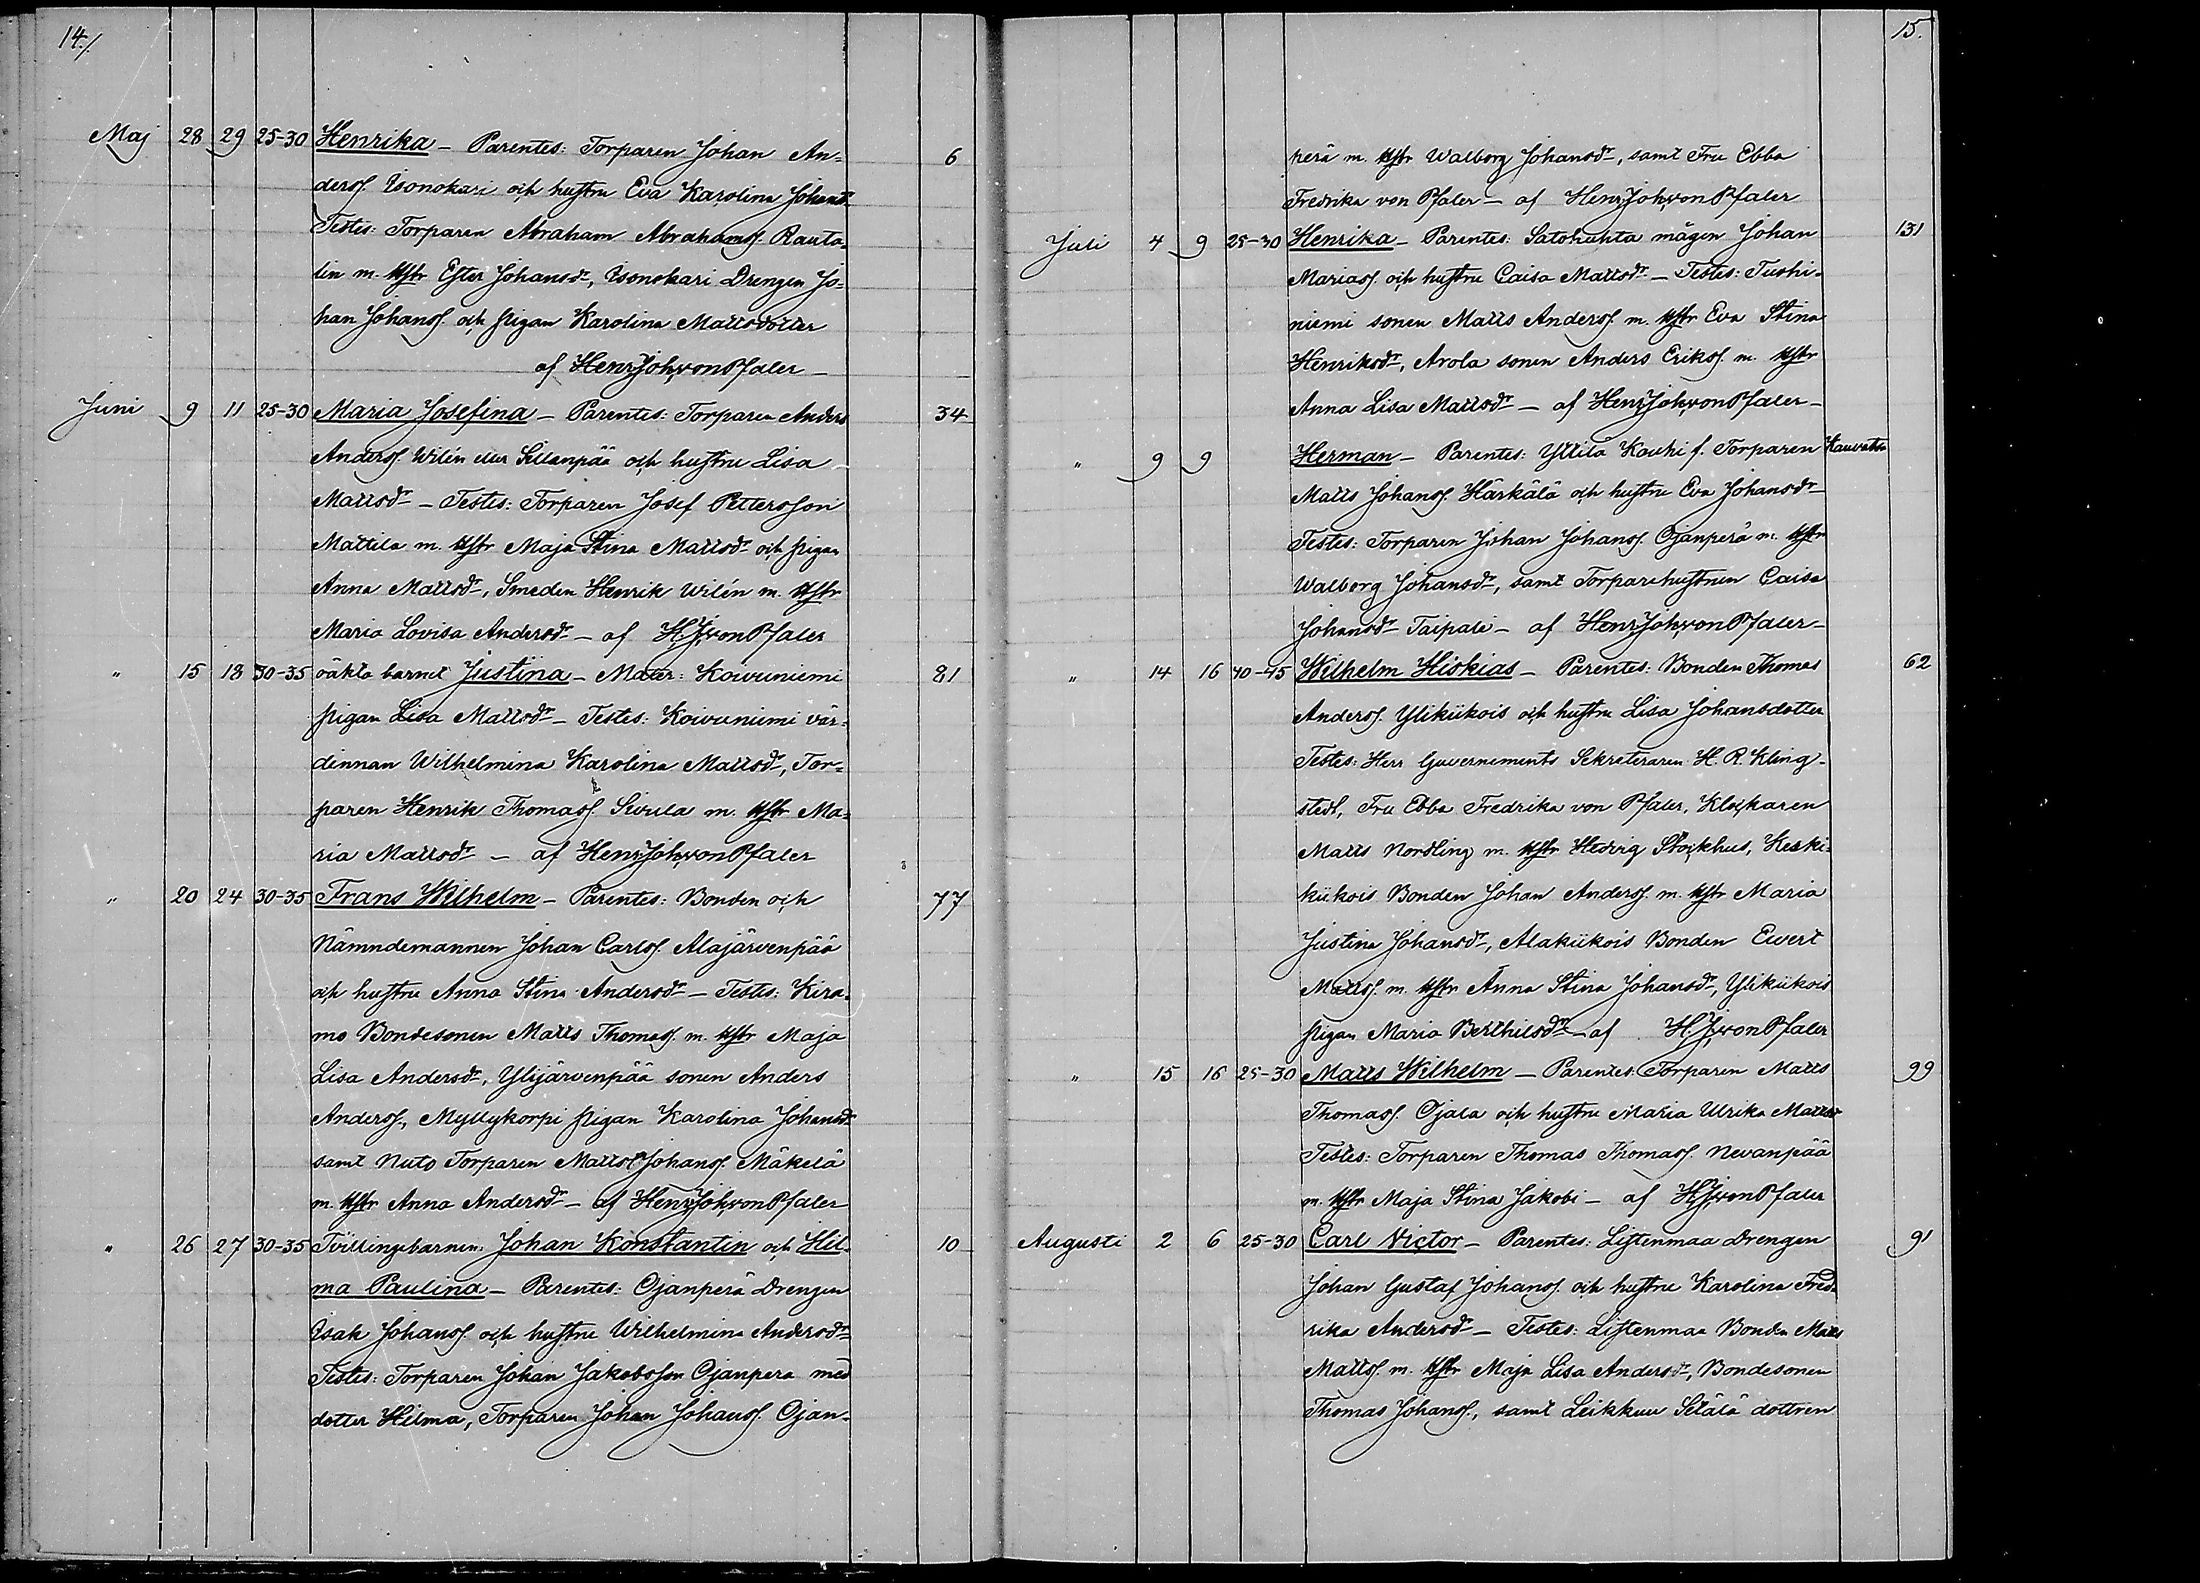 14./
Maj 28 29 25-30 Henrika – Parentes: Torparen Johan An- 6
derss. Isonokari och hustru Eva Karolina Johansdr
Testes: Torparen Abraham Abrahamss. Rauta-
lin m. hstr Ester Johansdr, Isonokari Drengen Jo-
han Johanss. och pigan Karolina Mattsdotter
af Henr. Joh. von Pfaler –
Juni 9 11 25-30 Maria Josefina – Parentes: Torparen Anders 34
Anderss. Wilén eller Sillanpää och hustru Lisa
Mattsdr – Testes: Torparen Josef Pettersson
Mattila m. hstr Maja Stina Mattsdr och pigan
Anna Mattsdr, Smeden Henrik Wilén m. hstr
Maria Lovisa Andersdr – af H. J. von Pfaler
" 15 18 30-35 oäkta barnet Justina – Mater: Koivuniemi 81
pigan Lisa Mattsdr – Testes: Koivuniemi vär-
dinnan Wilhelmina Karolina Mattsdr, Tor-
paren Henrik Thomass. Sivula m. hstr Ma-
ria Mattsdr – af Henr. Joh. von Pfaler
" 20 24 30-35 Frans Wilhelm – Parentes: Bonden och 77
Nämndemannen Johan Carlss. Alajärvenpää
och hustru Anna Stina Andersdr – Testes: Kira-
mo Bondesonen Matts Thomass. m. hstr Maja
Lisa Andersdr, Ylijärvenpää sonen Anders
Anderss., Myllykorpi pigan Karolina Johansdr
samt Nuto Torparen Matts Johanss. Mäkelä
m. hstr Anna Andersdr – af Henr. Joh. von Pfaler
" 26 27 30-35 Tvillingebarnen: Johan Konstantin och Hil- 10
ma Paulina – Parentes: Ojanperä Drengen
Isak Johanss. och hustru Wilhelmina Andersdr
Testes: Torparen Johan Jakobsson Ojanpera med
dotter Hilma, Torparen Johan Johanss. Ojan-
15.
perä m. hstr Walborg Johansdr, samt Fru Ebba
Fredrika von Pfaler – af Henr. Joh. von Pfaler
Juli 4 9 25-30 Henrika – Parentes: Satohuhta mågen Johan 131
Mariass. och hustru Caisa Mattsdr – Testes: Tuohi-
niemi sonen Matts Anderss. m. hstr Eva Stina
Henriksdr, Arola sonen Anders Erikss. m. hstr
Anna Lisa Mattsdr – af Henr. Joh. von Pfaler –
" 9 9 Herman – Parentes: Yttilä Kouhi f. Torparen Kauvatsa
Matts Johanss. Härkälä och hustru Eva Johansdr
Testes: Torparen Johan Johanss. Ojanperä m. hstr
Walborg Johansdr, samt Torparehustrun Caisa
Johansdr Taipale – af Henr. Joh. von Pfaler –
" 14 16 40-45 Wilhelm Hiskias – Parentes: Bonden Thomas 62
Anderss. Ylikiikois och hustru Lisa Johansdotter
Testes: Herr Guvernements Sekreteraren H. R. Kling-
stedt, Fru Ebba Fredrika von Pfaler, Klockaren
Matts Nordling m. hstr Hedvig Stockhus, Keski-
kiikois Bonden Johan Anderss. m. hstr Maria
Justina Johansdr, Alakiikois Bonden Evert
Mattss. m. hstr Anna Stina Johansdr, Ylikiikois
pigan Maria Berthilsdr – af H. J. von Pfaler
" 15 16 25-30 Matts Wilhelm – Parentes: Torparen Matts 99
Thomass. Ojala och hustru Maria Ulrika Mattsdr
Testes: Torparen Thomas Thomass. Nevanpää
m. hstr Maja Stina Jakobi – af H. J. von Pfaler
Augusti 2 6 25-30 Carl Victor – Parentes: Listenmaa Drengen 91
Johan Gustaf Johanss. och hustru Karolina Fred-
rika Andersdr – Testes: Listenmaa Bonden Matts
Mattss. m. hstr Maja Lisa Andersdr, Bondesonen
Thomas Johanss., samt Leikkuu Sälälä dottren